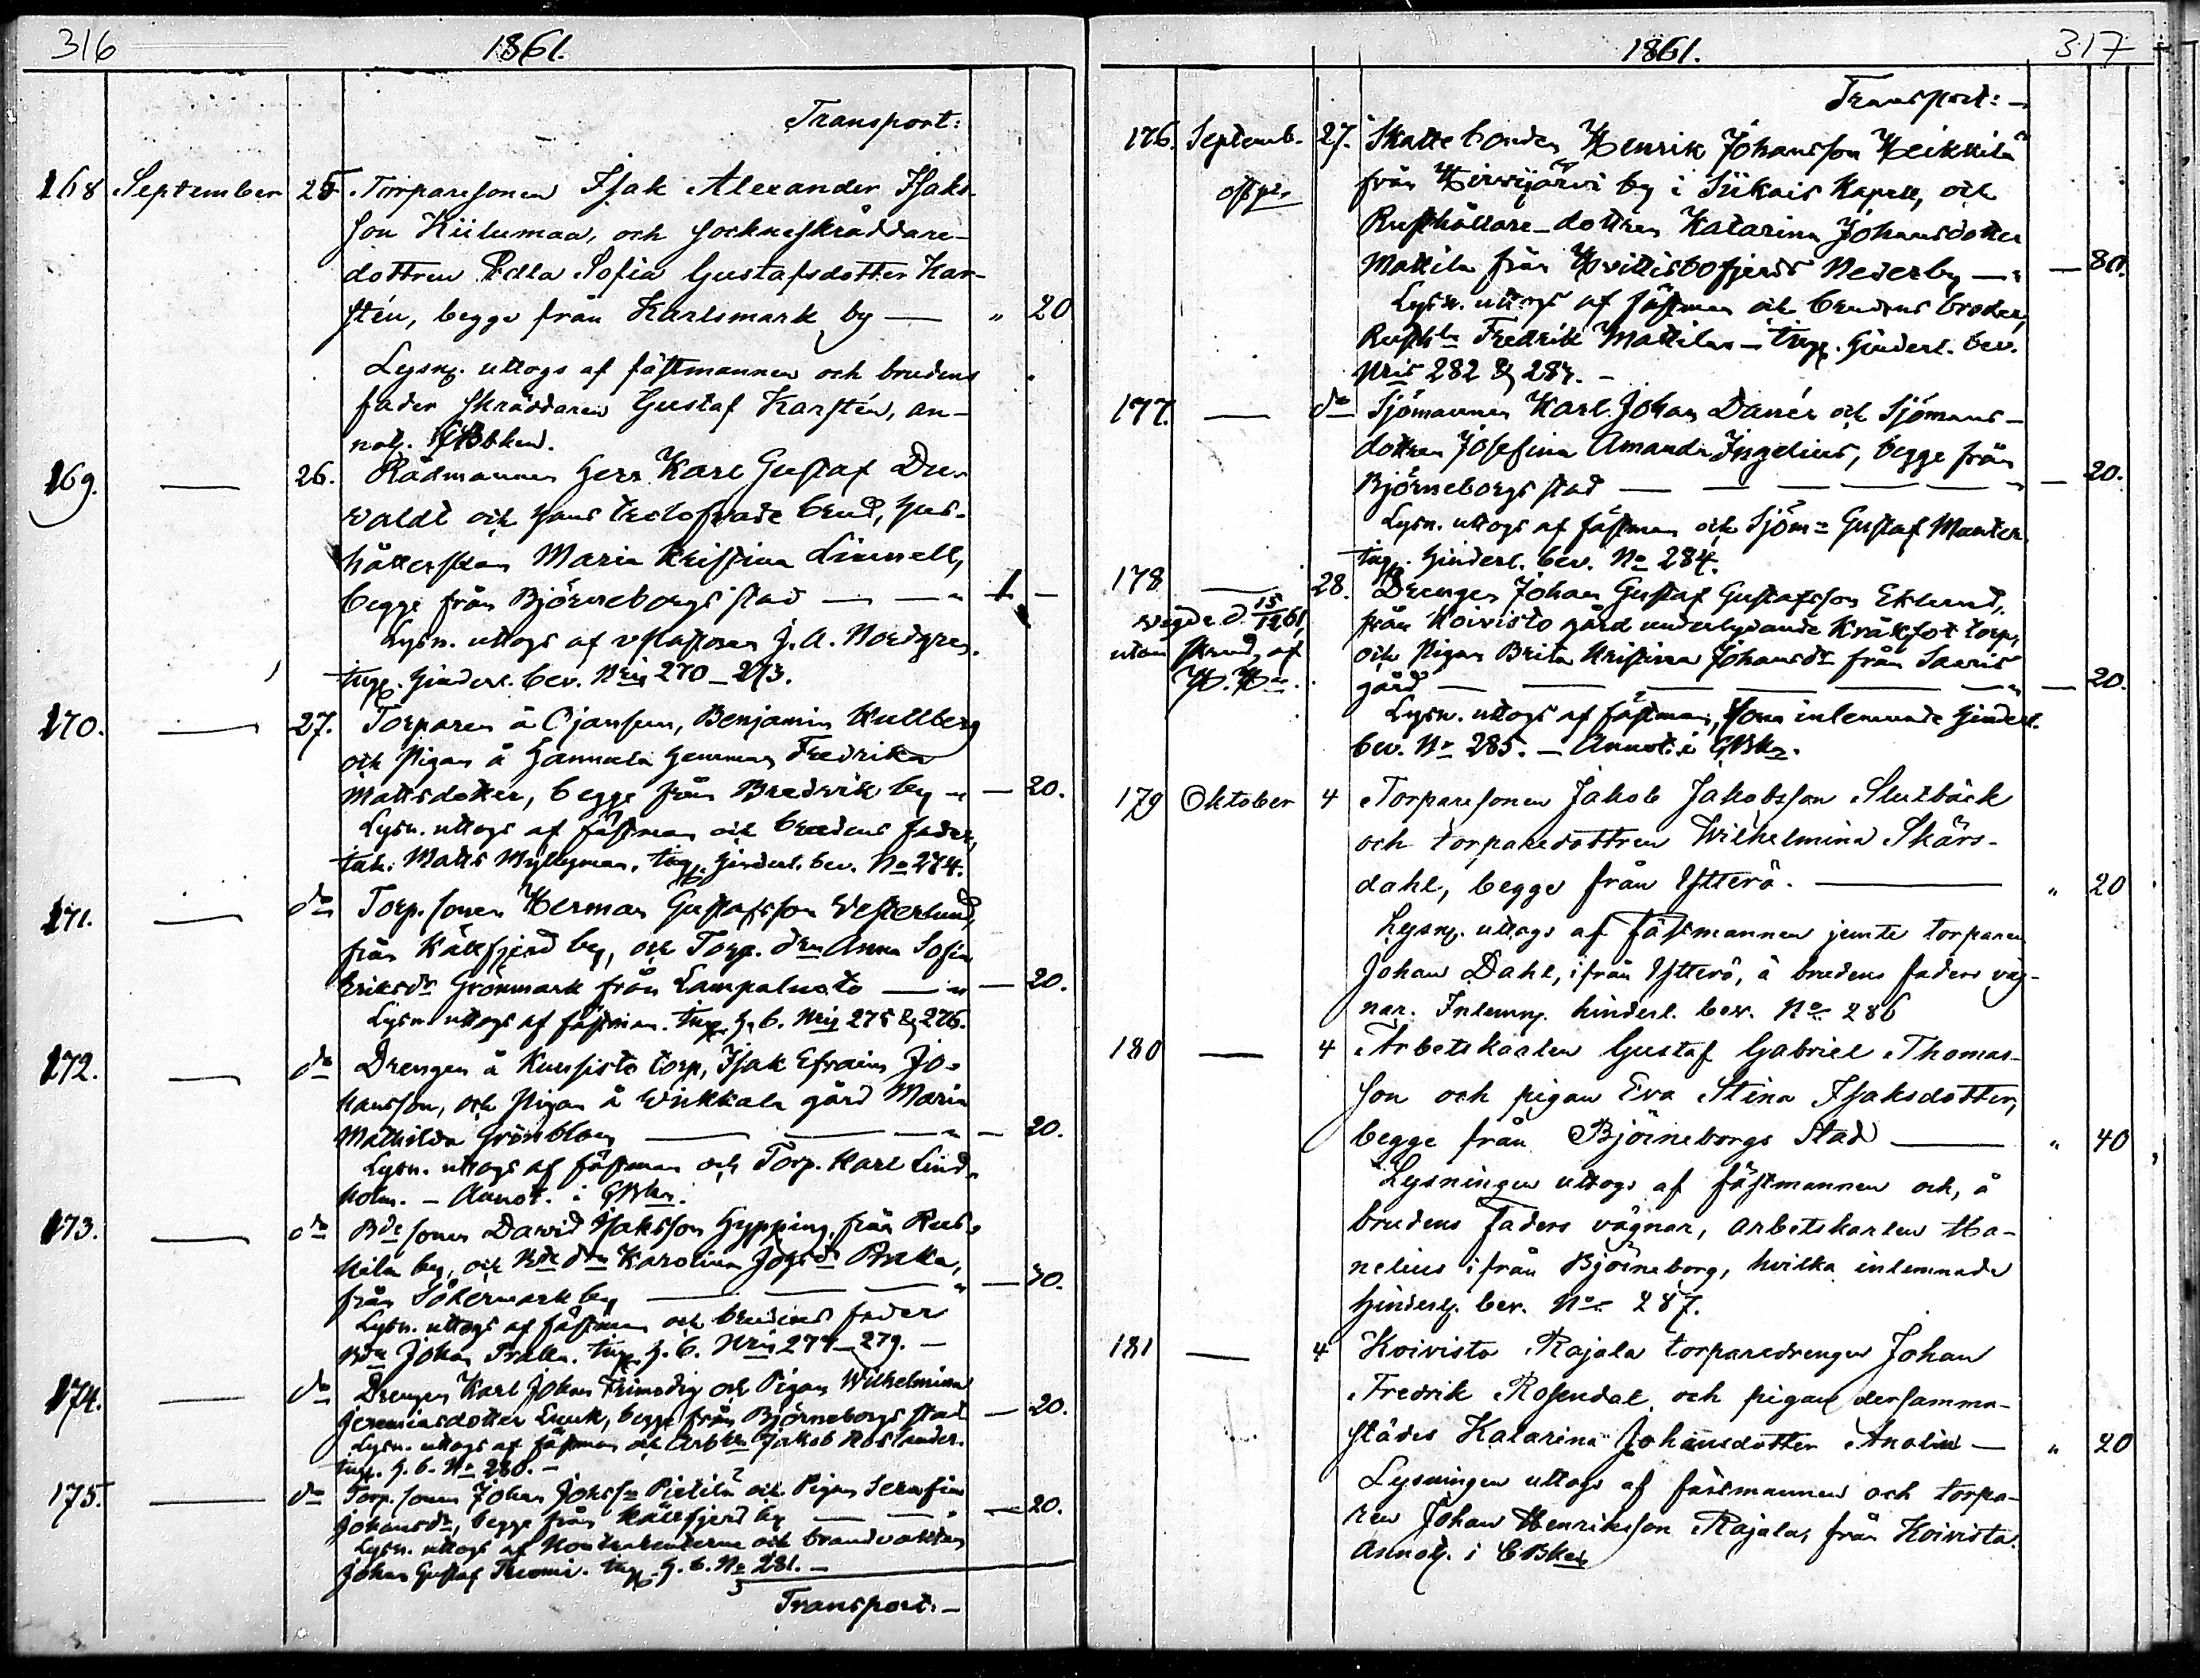 316
1861.
Transport:
168 September 25 Torparesonen Isak Alexander Isaks-
son Kiilumaa, och sockneskräddare-
dottren Edla Sofia Gustafsdotter Kar-
stén, begge från Karlsmark by — " 20
Lysng. uttogs af fästmannen och brudens
fader skräddaren Gustaf Karstén, an-
not.
169. — 26. Rådmannen Herr Karl Gustaf
waldt och hans trolofvade brud, hus-
hållerskan Maria Kristina Linnell,
begge från Björneborgs stad — — " 1 —
Lysn. uttogs af J. A. Nordgren.
ingf. hinderl. bev. Nris 270 — 273.
170. — 27. Torparen å Ojansuu, Benjamin Kullberg
och Pigan å Hannula hemman Fredrika
Mattsdotter, begge från Bredvik by " — 20.
Lysn. uttogs af fästman och brudens fader,
Matts Myllyman. ingf. hinderl. bev. No 274.
171. — do Torp. sonen Herman Gustafsson Vesterlund,
från Källfjerd by, och Torp. drn Anna Sofia
Eriksdr Grönmark från Lampaluoto — " — 20.
Lysn. uttogs af fästman. ingf. h. b. Nris 275 & 276.
172. — do Drengen å Kuusisto torp, Isak Efraim Jo-
hansson, och Pigan å Wikkala gård Maria
Mathilda Grönblom — — — " — 20.
Lysn. uttogs af fästman och Torp. Karl Lind-
holm. — Annot. i
173. — do Bde sonen David Isaksson Hypping, från Rus-
nila by, och Bde drn Karolina Johsdr Pralla,
från Södermark by — — — " — 30.
Lysn. uttogs af fästman och brudens fader
Bdn Johan Pralla. ingf. h. b. Nris 277 — 279. —
174. — do Drengen Karl Johan Frimodig och Pigan Wilhelmina
Jeremiasdotter begge från Björneborgs stad — 20.
Lysn. uttogs af fästman och Arbkn Jakob
ingf. h. b. No 280. —
175. — do Torp. sonen Johan Johsson Pietilä och Pigan Serafia
Johansdr, begge från Källfjerd by — — " — 20.
Lysn. uttogs af Kontrahenterne och brandvakten
Johan Gustaf ingf. h. b. No 281. —
Transport: —
1861.
317
Transport: —
176. Septemb. 27. Skattebonden Henrik Johansson Heikkilä
från Hirvijärvi by i Siikais Kapell, och
Rusthållare-dottren Katarina Johansdotter
Mattila från Hvittisbofjerds Nederby — " — 80.
Lysn. uttogs af fästman och brudens broder,
Fredrik Mattila — ingf. hinderl. bev.
Nris 282 & 283. —
177. — do Sjömannen Karl Johan Danér och Sjömans-
dottren Josefina Amanda Ingelius, begge från
Björneborgs stad — — — — — " — 20.
Lysn. uttogs af fästman och Sjömn Gustaf Manter
ingf. hinderl. bev. No 284.
178 — 28. Drengen Johan Gustaf Gustafsson Eklund,
vigde d. 15/12 61, från Koivisto gård underlydande Kråkfot torp,
utom och Pigan Brita Kristina Johansdr från Saaris
gård — — — — — " — 20.
Lysn. uttogs af fästman, som inlemnade hinderl.
bev. No 285. — Annot. i
179 Oktober 4 Torparesonen Jakob Jakobsson Slutbäck
och torparedottren Wilhelmina Skärs-
dahl, begge från Ytterö. — " 20
Lysng. uttogs af Fästmannen jemte torparen
Johan Dahl, ifrån Ytterö, å brudens faders väg-
nar. Inlemng. hinderl. bev. No 286
180 — 4 Arbetskarlen Gustaf Gabriel Thomas-
son och pigan Eva Stina Isaksdotter,
begge från Björneborgs Stad — " 40
Lysningen uttogs af fästmannen och, å
brudens Faders vägnar, arbetskarlen Ma-
nelius ifrån Björneborg, hvilka inlemnade
hinderlg. bev. No 287.
181 — 4 Koivisto Rajala torparedrengen Johan
Fredrik Rosendal, och pigan dersamma-
städes Katarina Johansdotter Analin — " 20
Lysningen uttogs af fästmannen och torpa-
ren Johan Henriksson Rajala, från Koivisto.
Annotg. i